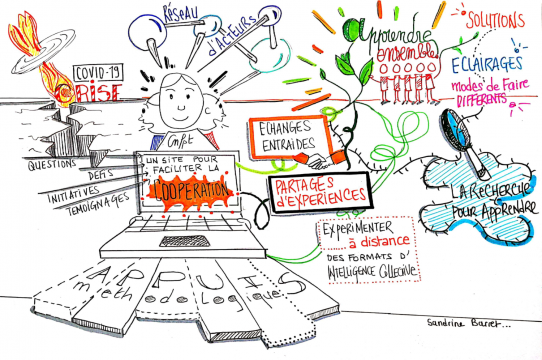 RÉSEAU
D'ACTEURS
COVID-19
CRISE
Apprendre
ensemble
SOLUTIONS
ECLAIRAGES
modes de Faire
DIFFERENTS
QUESTIONS
DEFIS
INITIATIVES
TEMOIGNAGES
UN SITE POUR
FACILITER LA
COOPERATION
ECHANGES
ENTRAIDES
PARTAGES
D'EXPERIENCES
LA RECHERCHE
POUR APPRENDRE
EXPERIMENTER
à distance
DES FORMATS D'
INTELLIGENCE COLLECTIVE
APPUIS
methodologiques
Sandrine Barret...